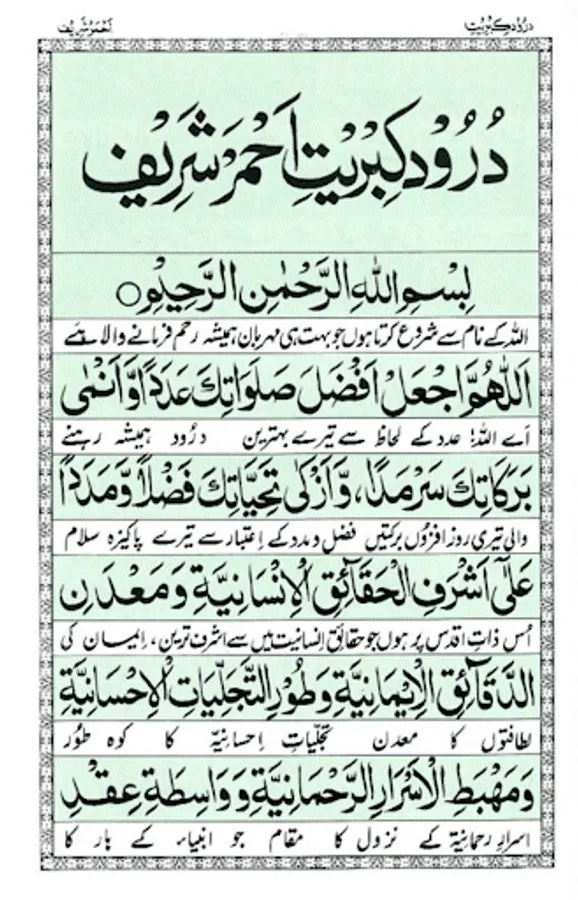 درُود کِبْرِیْتِ
اَحْمَر شَرِیْف
دُرُوْد کِبْرِیْتِ اَحْمَر شَرِیْف
بِسْمِ اللهِ الرَّحْمٰنِ الرَّحِيْمِ ○
اللہ کے نام سے شروع کرتا ہوں جو بہت ہی مہربان ہمیشہ رحم فرمانے والا ہے
اَللّٰهُمَّ اجْعَلْ اَفْضَلَ صَلَوَاتِكَ عَدَدًا وَّاَنْمٰى
اَے اللہ! عدد کے لحاظ سے تیرے بہترین درُود ہمیشہ رہنے
بَرَكَاتِكَ سَرْمَدًا، وَّاَزْكٰى تَحِيَّاتِكَ فَضْلًا وَّمَدَدًا
والی تیری روز افزوں برکتیں فضل و مدد کے اِعتبار سے تیرے پاکیزہ سلام
عَلٰٓى اَشْرَفِ الْحَقَآئِقِ الْاِنْسَانِيَّةِ وَمَعْدَنِ
اُس ذاتِ اقدس پر ہوں جو حقائقِ اِنسانیت میں سے اشرف ترین، اِیمان کی
الدَّقَآئِقِ الْاِيْمَانِيَّةِ وَطُوْرِ التَّجَلِّيَاتِ الْاِحْسَانِيَّةِ
لطافتوں کا معدن تجلیّاتِ اِحسانیّہ کا کوہ طوُر
وَمَهْبَطِ الْاَسْرَارِ الرَّحْمَانِيَّةِ وَوَاسِطَةِ عِقْدِ
اسرارِ رحمانیّۃ کے نزول کا مقام جو انبیاء کے ہار کا